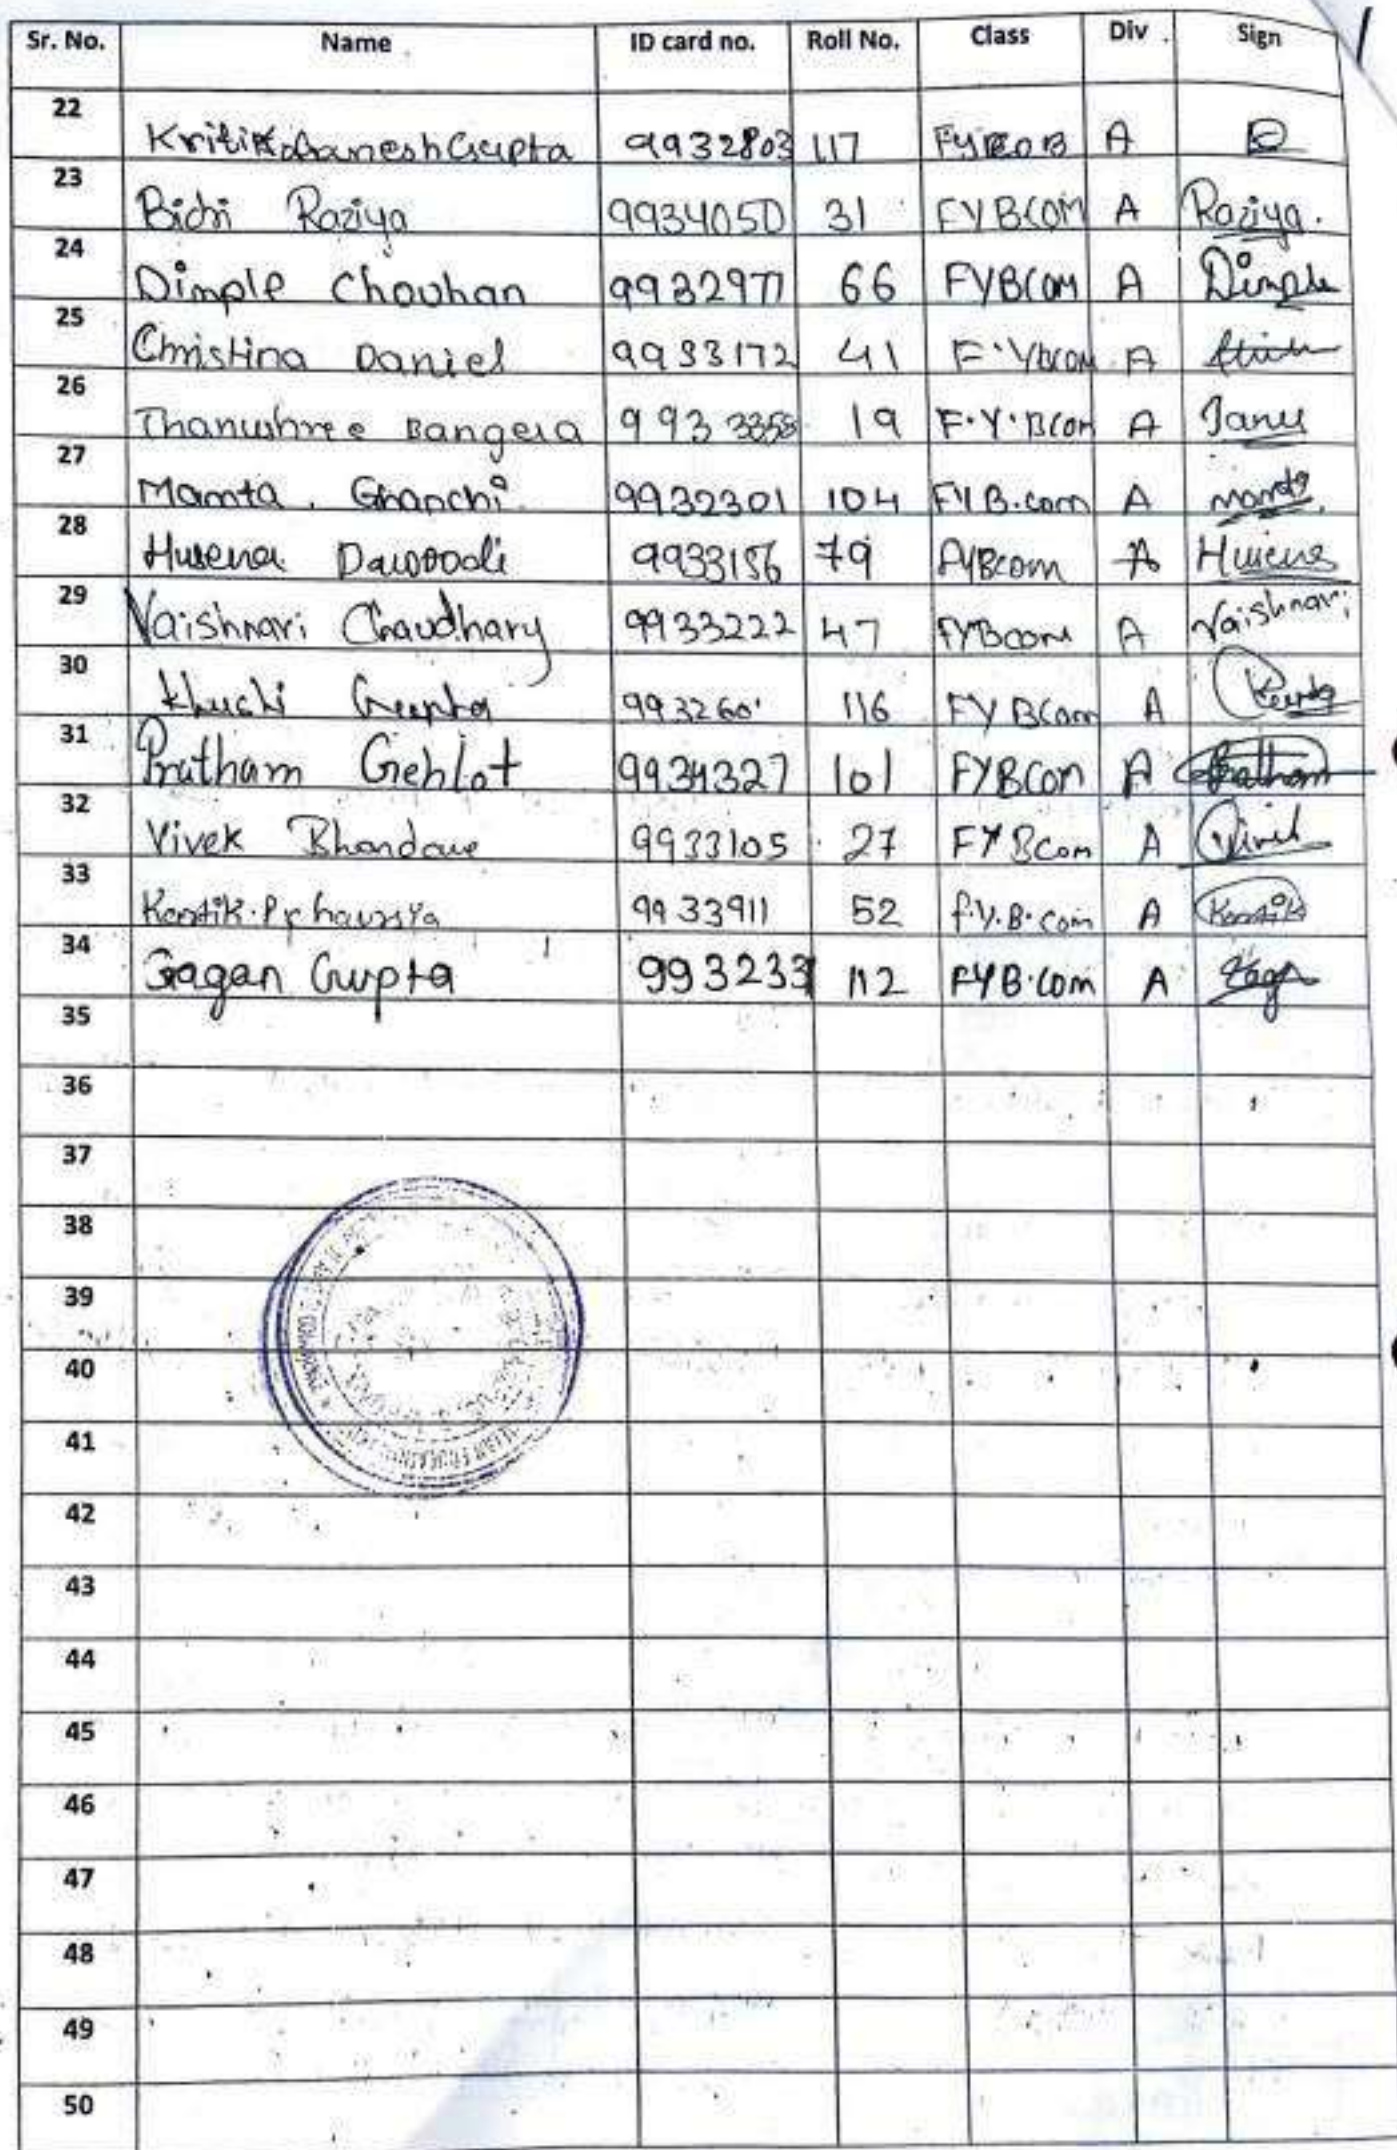 Sr. No. Name ID card no. Roll No. Class Div Sign
22 Kritik Ganesh Gupta 9932803 117 A
23 Bichi Raziya 9934050 31 FYBCOM A Raziya.
24 Dimple Chouhan 9932977 66 FYBCOM A Dimple
25 Christina Daniel 9933172 41 F.Ybcom A
26 Thanushree Bangera 993 3358 19 F.Y.BCom A Tanu
27 Mamta . Ghanchi. 9932301 104 FYB.com A mamta
28 Husena Dawoodi 9933156 79 FYBcom A Husena
29 Vaishnavi Chaudhary 9933222 47 FYBcom A Vaishnavi
30 Khushi Gupta 993260 116 FYBCom A
31 Pratham Gehlot 9934327 101 FYBCom A Pratham
32 Vivek Bhandare 9933105 27 FYBCom A Vivek
33 Kartik.P 9933911 52 F.Y.B.com A Kartik
34 Gagan Gupta 993233 112 FYB.com A
35
36
37
38
39
40
41
42
43
44
45
46
47
48
49
50